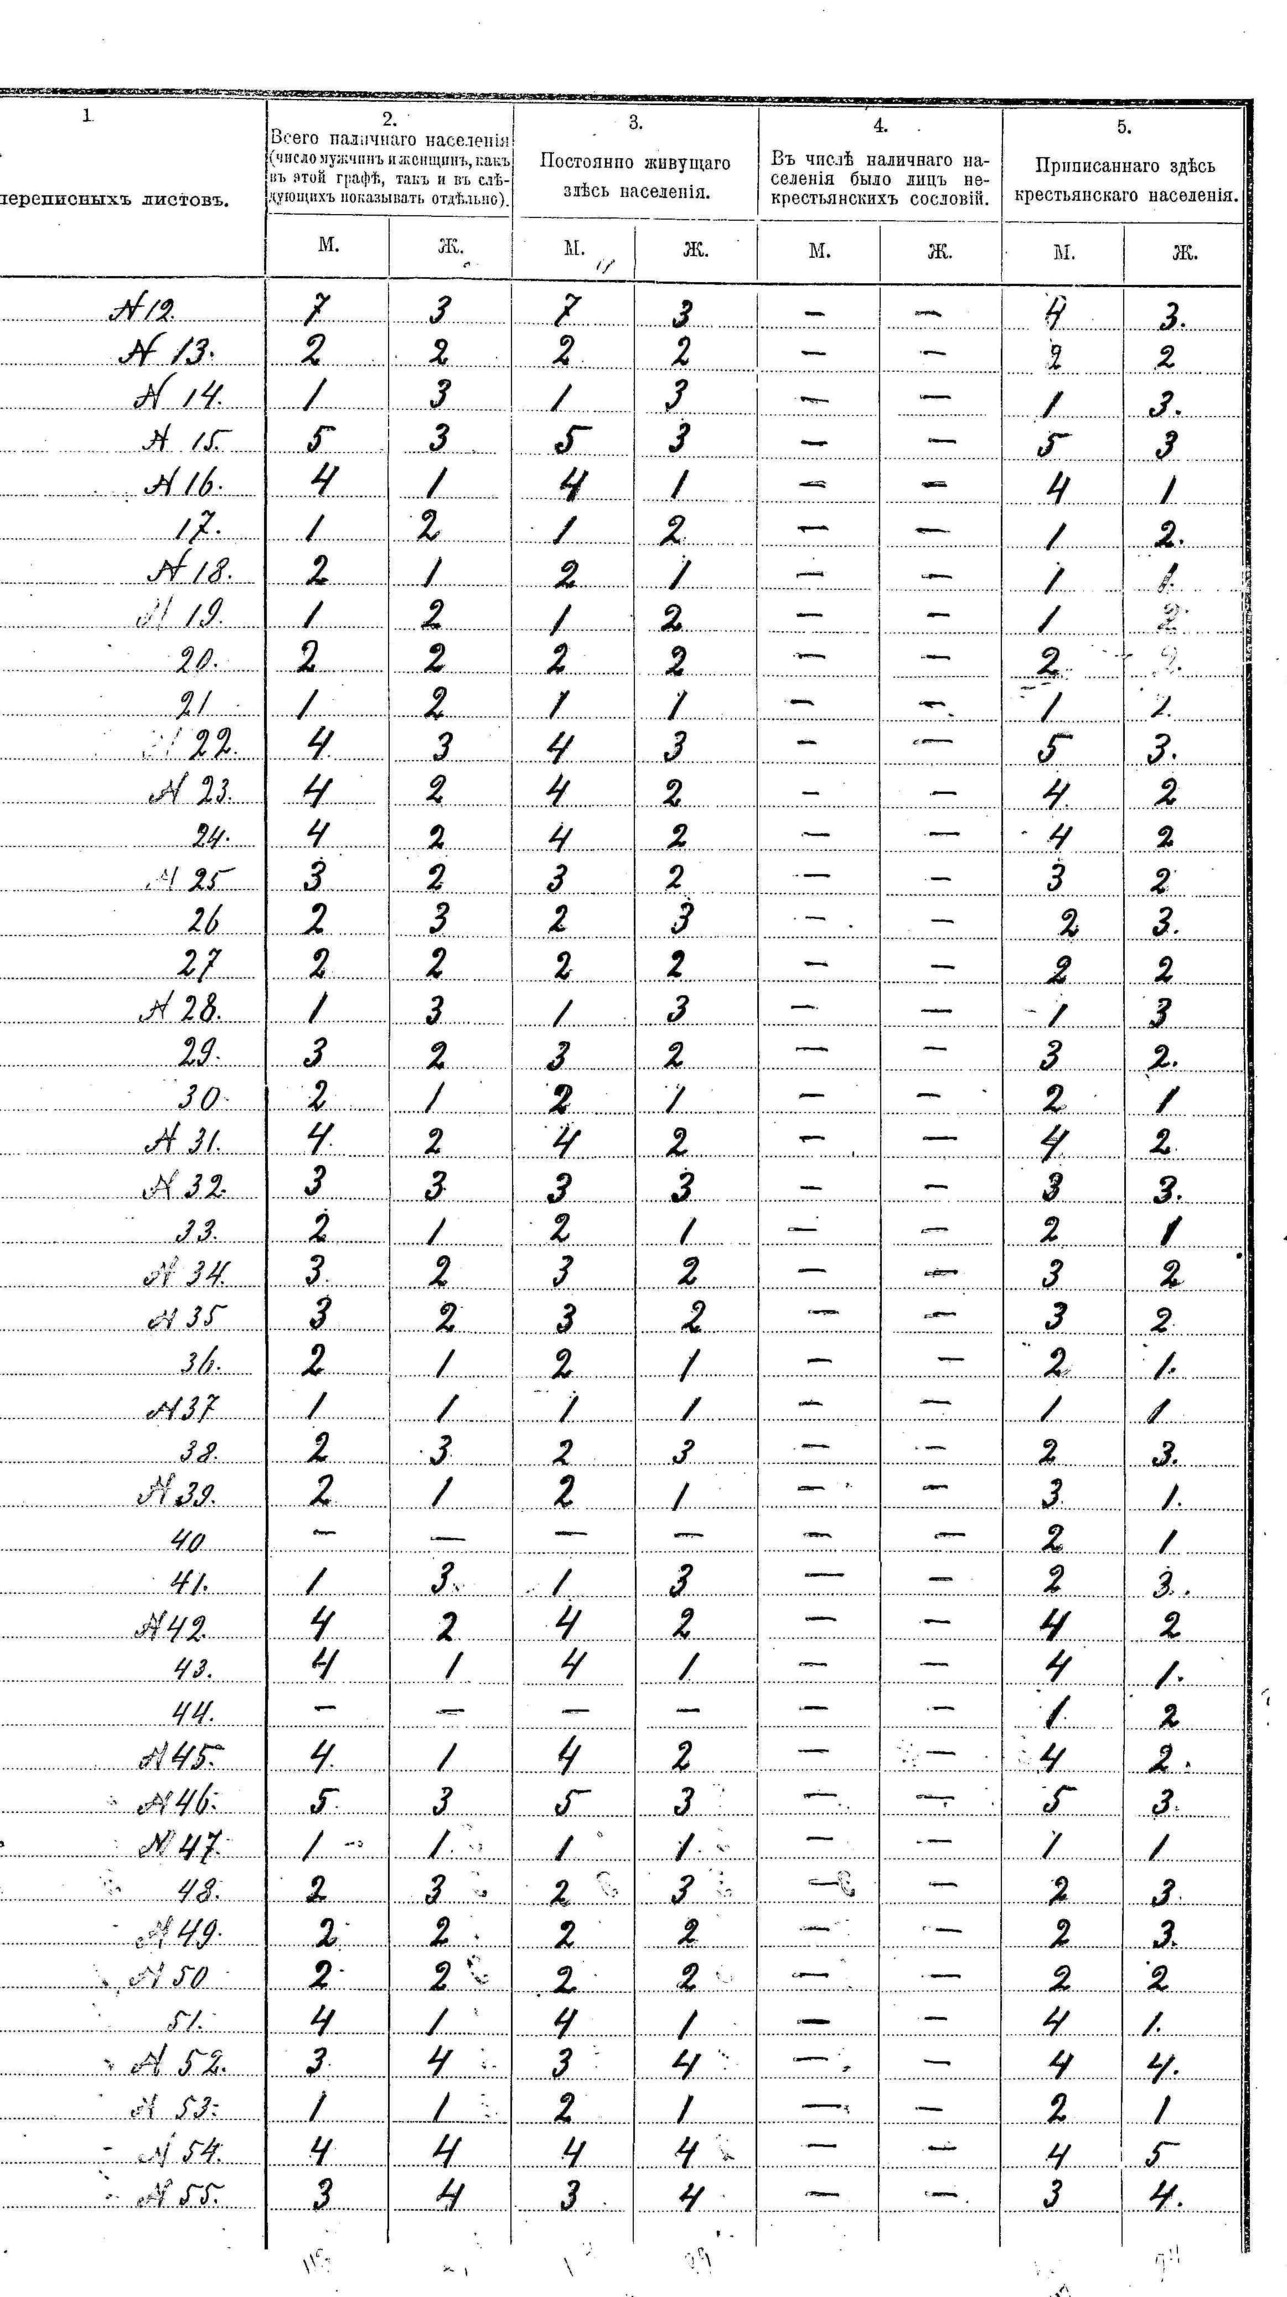 1 2. 3. 4. 5.
переписныхъ листовъ.
Всего наличнаго населенія
(число мужчинъ и женщинъ, какъ
въ этой графѣ, такъ и въ слѣ-
дующихъ показывать отдѣльно).
Постоянно живущаго
здѣсь населенія.
Въ числѣ наличнаго на-
селенія было лицъ не-
крестьянскихъ сословій.
Приписаннаго здѣсь
крестьянскаго населенія.
М. Ж. М. Ж. М. Ж. М. Ж.
N 12 7 3 7 3 — — 4 3.
N 13. 2 2 2 2 — — 2 2
N 14. 1 3 1 3 — — 1 3.
N 15. 5 3 5 3 — — 5 3
N 16. 4 1 4 1 — — 4 1
17. 1 2 1 2 — — 1 2.
N 18. 2 1 2 1 — — 1 1.
N 19. 1 2 1 2 — — 1 2
20. 2 2 2 2 — — 2 2.
21 1 2 1 1 — — 1 2.
N 22. 4 3 4 3 — — 5 3.
N 23. 4 2 4 2 — — 4 2
24. 4 2 4 2 — — 4 2
N 25 3 2 3 2 — — 3 2
26 2 3 2 3 — — 2 3.
27 2 2 2 2 — — 2 2
N 28. 1 3 1 3 — — 1 3
29. 3 2 3 2 — — 3 2.
30 2 1 2 1 — — 2 1
N 31. 4 2 4 2 — — 4 2.
N 32. 3 3 3 3 — — 3 3.
33. 2 1 2 1 — — 2 1
N 34. 3 2 3 2 — — 3 2
N 35 3 2 3 2 — — 3 2
36. 2 1 2 1 — — 2 1.
N 37 1 1 1 1 — — 1 1
38. 2 3 2 3 — — 2 3.
N 39. 2 1 2 1 — — 3 1.
40 — — — — — — 2 1
41. 1 3 1 3 — — 2 3.
N 42. 4 2 4 2 — — 4 2
43. 4 1 4 1 — — 4 1.
44. — — — — — — 1 2
N 45. 4 1 4 2 — — 4 2.
N 46. 5 3 5 3 — — 5 3.
N 47. 1 1 1 1 — — 1 1
48. 2 3 2 3 — — 2 3
N 49. 2 2 2 2 — — 2 3.
N 50 2 2 2 2 — — 2 2
51. 4 1 4 1 — — 4 1.
N 52. 3 4 3 4 — — 4 4.
N 53. 1 1 2 1 — — 2 1
N 54. 4 4 4 4 — — 4 5
N 55. 3 4 3 4 — — 3 4.